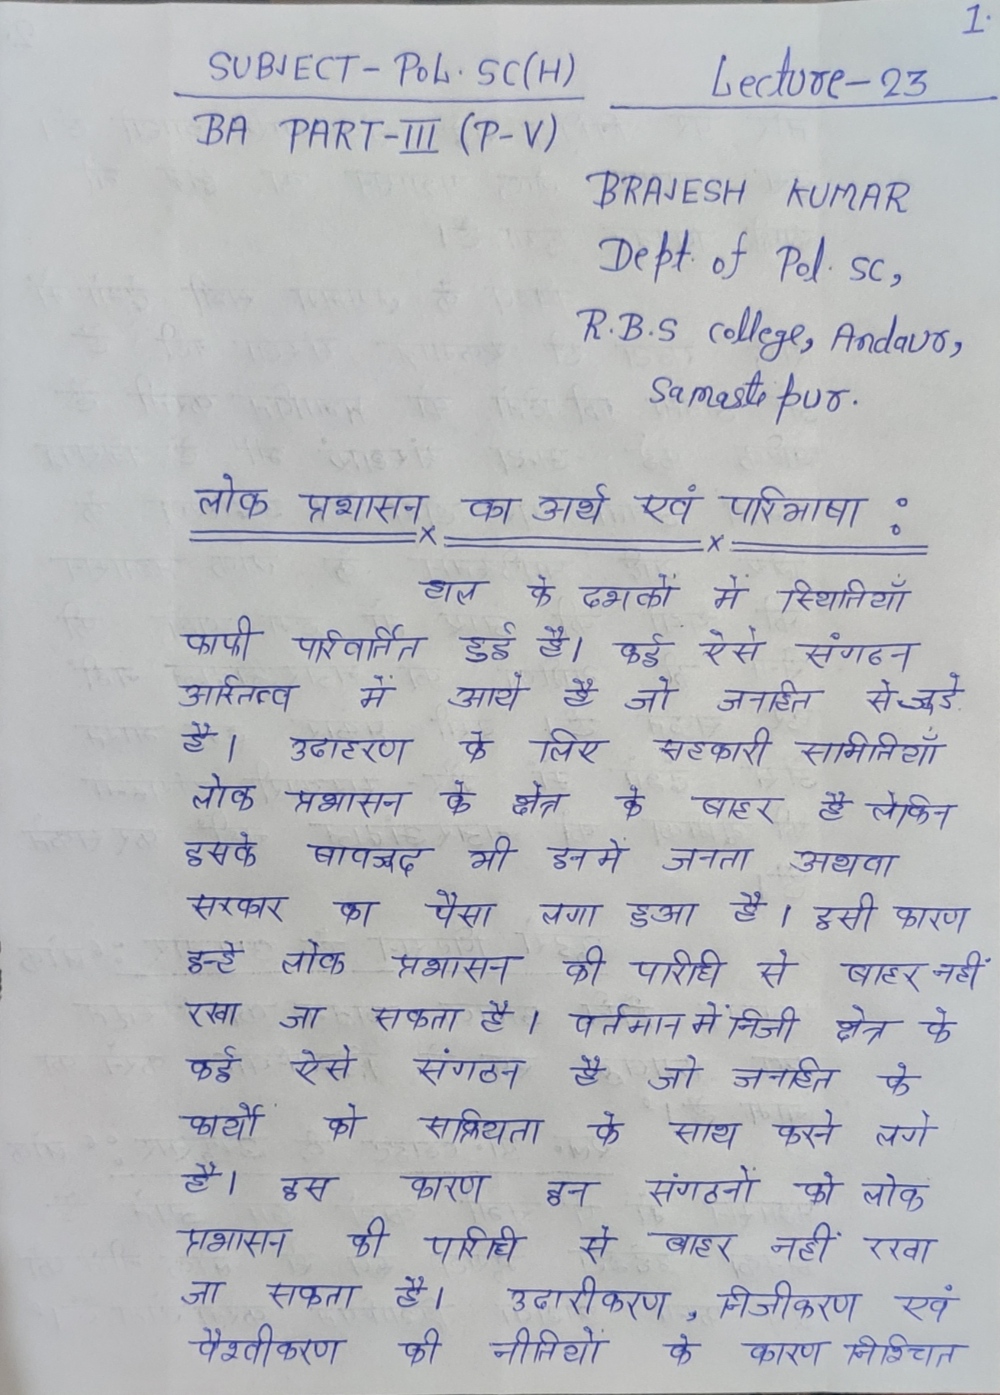 1.
SUBJECT- POL. SC(H) Lecture-23
BA PART-III (P-V)
BRAJESH KUMAR
Dept. of Pol. SC,
R.B.S College, Andaur,
Samastipur.
लोक प्रशासन का अर्थ एवं परिभाषा :
हाल के दशकों में स्थितियाँ
काफी परिवर्तित हुई है। कई ऐसे संगठन
अस्तित्व में आये है जो जनहित से जुड़े
है। उदाहरण के लिए सहकारी समितियाँ
लोक प्रशासन के क्षेत्र के बाहर है लेकिन
इसके बावजूद भी इनमें जनता अथवा
सरकार का पैसा लगा हुआ है। इसी कारण
इन्हें लोक प्रशासन की परिधि से बाहर नहीं
रखा जा सकता है। वर्तमान में निजी क्षेत्र के
कई ऐसे संगठन है जो जनहित के
कार्यो को सक्रियता के साथ करने लगे
है। इस कारण इन संगठनों को लोक
प्रशासन की परिधि से बाहर नहीं रखा
जा सकता है। उदारीकरण, निजीकरण एवं
वैश्वीकरण की नीतियों के कारण निश्चित